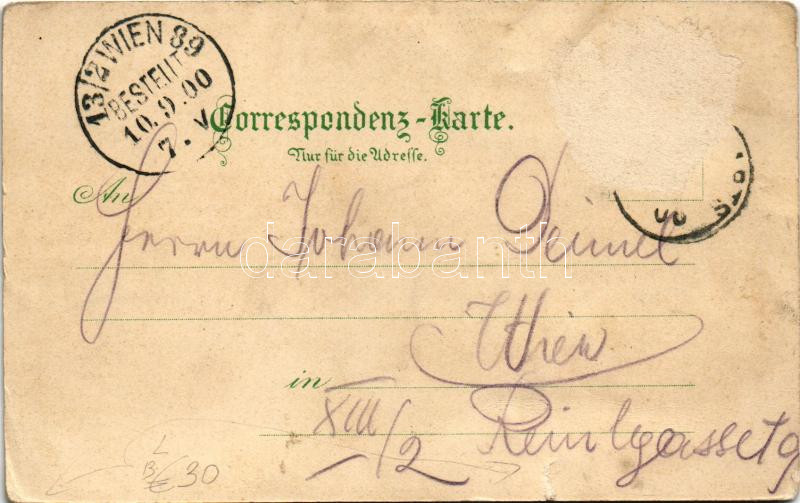 13/2 WIEN 89
BESTELLT
10.9.00
7. V
Correspondenz-Karte.
Nur für die Adresse.
An
Herrn Johann
darabanth
Wien
in
XIII/2
30